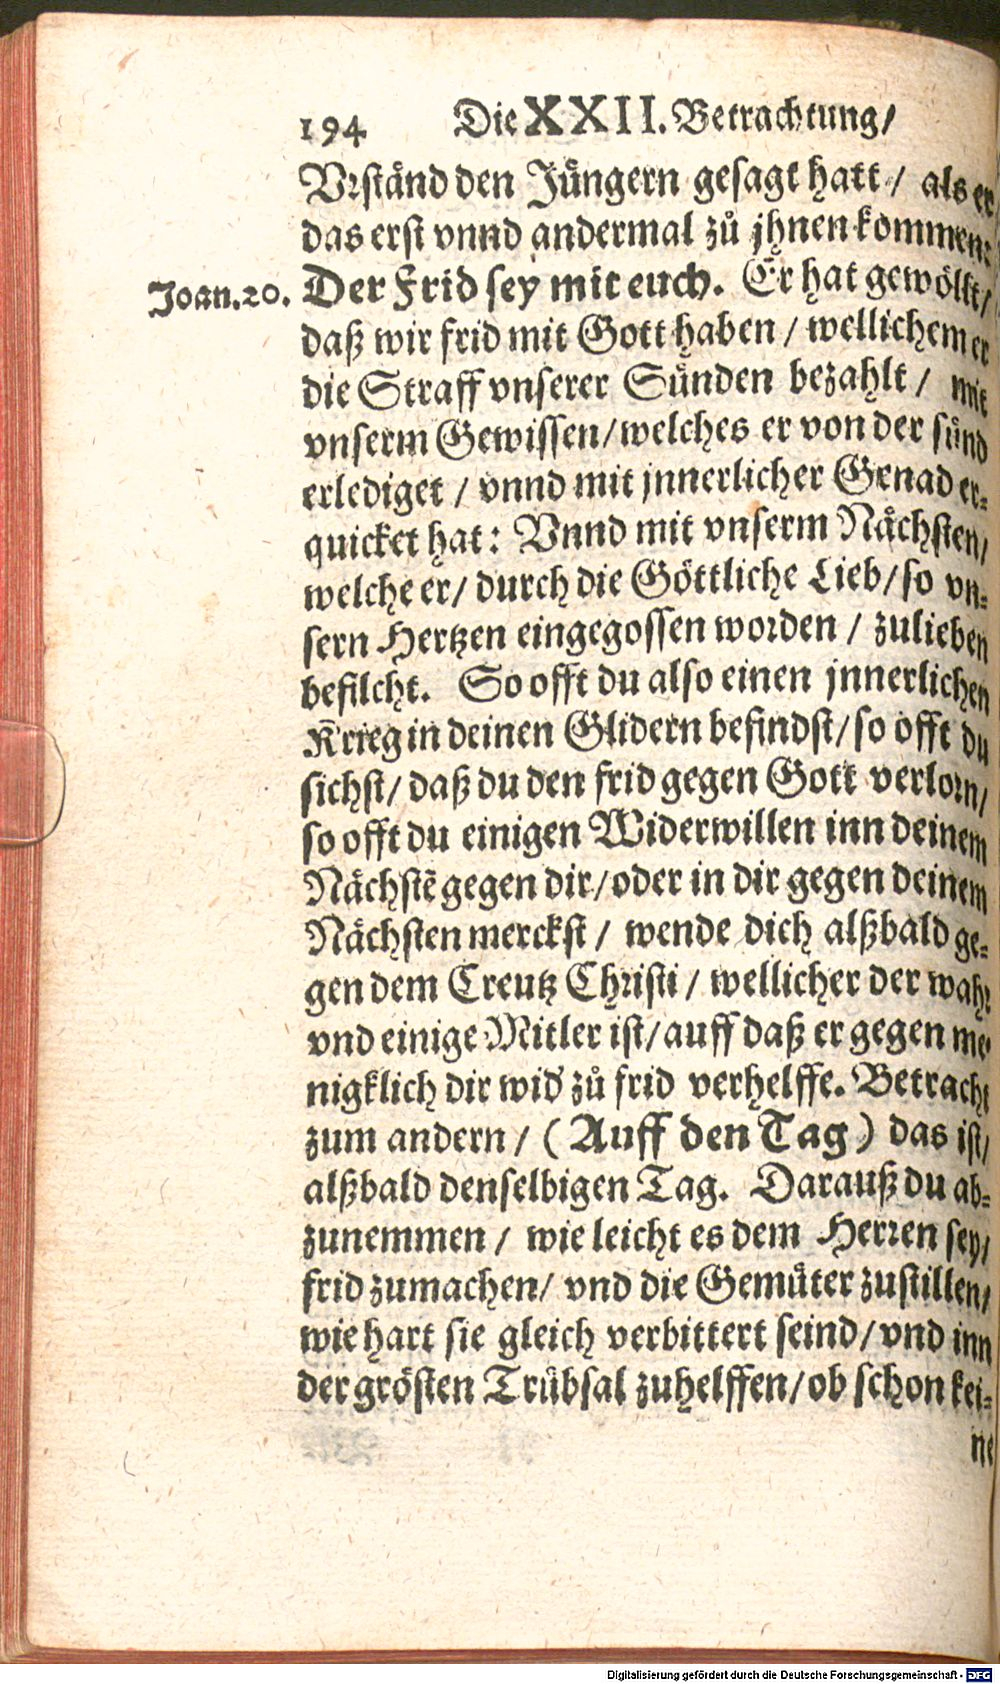 194 Die XXII. Betrachtung/
Vrständ den Jüngern gesagt hatt / als er
das erst vnnd andermal zů jhnen kommen:
Joan.20. Der Frid sey mit euch. Er hat gewöllt/
daß wir frid mit Gott haben / wellichem er
die Straff vnserer Sünden bezahlt / mit
vnserm Gewissen/welches er von der sünd
erlediget / vnnd mit jnnerlicher Genad er-
quicket hat: Vnnd mit vnserm Nächsten/
welche er/ durch die Göttliche Lieb/so vn-
sern Hertzen eingegossen worden / zulieben
befilcht. So offt du also einen jnnerlichen
Krieg in deinen Glidern befindst/so offt du
sichst/ daß du den frid gegen Gott verlorn/
so offt du einigen Widerwillen inn deinem
Nächstē gegen dir/oder in dir gegen deinem
Nächsten merckst / wende dich alßbald ge-
gen dem Creutz Christi / wellicher der wahr
vnd einige Mitler ist/auff daß er gegen me-
nigklich dir wid' zů frid verhelffe. Betracht
zum andern / (Auff den Tag) das ist/
alßbald denselbigen Tag. Darauß du ab-
zunemmen / wie leicht es dem Herren sey/
frid zumachen/ vnd die Gemüter zustillen/
wie hart sie gleich verbittert seind/vnd inn
der grösten Trübsal zuhelffen/ob schon kei-
ne
Digitalisierung gefördert durch die Deutsche Forschungsgemeinschaft - DFG